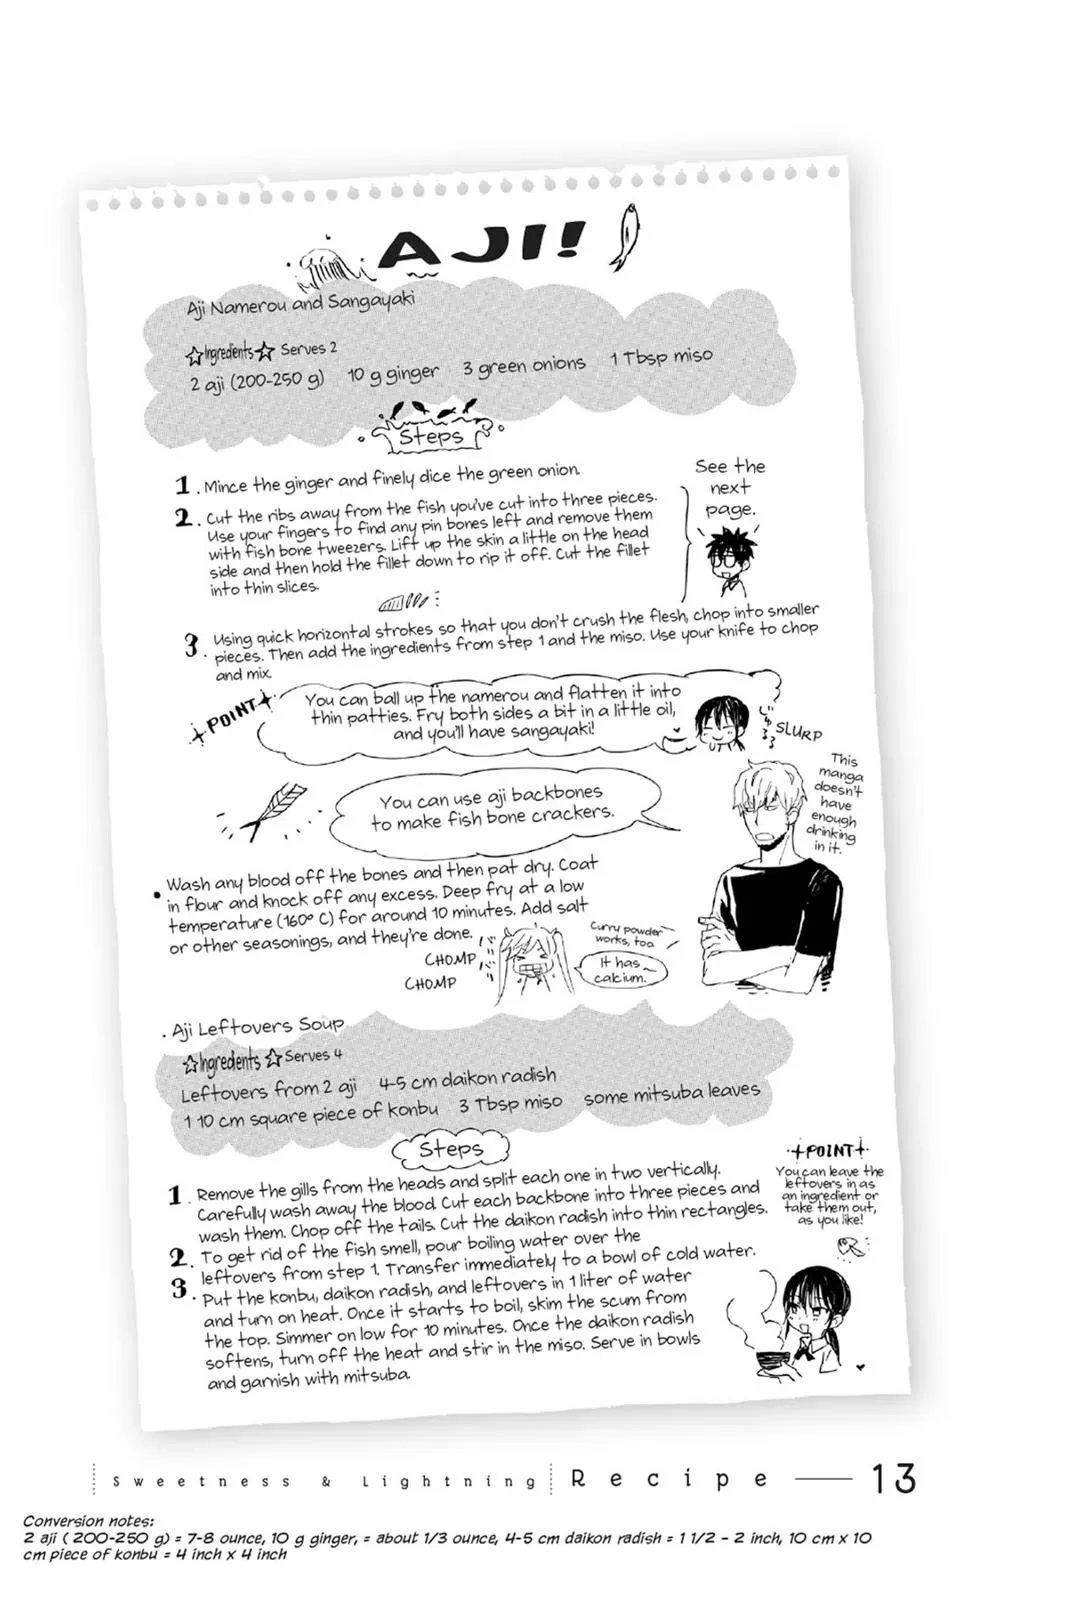 AJI!
Aji Namerou and Sangayaki
☆Ingredients☆ Serves 2
2 aji (200-250 g) 10 g ginger 3 green onions 1 Tbsp miso
Steps
1. Mince the ginger and finely dice the green onion.
2. Cut the ribs away from the fish you've cut into three pieces.
Use your fingers to find any pin bones left and remove them
with fish bone tweezers. Lift up the skin a little on the head
side and then hold the fillet down to rip it off. Cut the fillet
into thin slices.
See the
next
page.
3. Using quick horizontal strokes so that you don't crush the flesh, chop into smaller
pieces. Then add the ingredients from step 1 and the miso. Use your knife to chop
and mix.
POINT
You can ball up the namerou and flatten it into
thin patties. Fry both sides a bit in a little oil,
and you'll have sangayaki!
SLURP
You can use aji backbones
to make fish bone crackers.
This
manga
doesn't
have
enough
drinking
in it.
• Wash any blood off the bones and then pat dry. Coat
in flour and knock off any excess. Deep fry at a low
temperature (160° C) for around 10 minutes. Add salt
or other seasonings, and they're done.
CHOMP
CHOMP
Curry powder
works, too.
It has
calcium.
. Aji Leftovers Soup
☆Ingredients☆ Serves 4
Leftovers from 2 aji 4-5 cm daikon radish
1 10 cm square piece of konbu 3 Tbsp miso some mitsuba leaves
Steps
1. Remove the gills from the heads and split each one in two vertically.
Carefully wash away the blood. Cut each backbone into three pieces and
wash them. Chop off the tails. Cut the daikon radish into thin rectangles.
2. To get rid of the fish smell, pour boiling water over the
leftovers from step 1. Transfer immediately to a bowl of cold water.
3. Put the konbu, daikon radish, and leftovers in 1 liter of water
and turn on heat. Once it starts to boil, skim the scum from
the top. Simmer on low for 10 minutes. Once the daikon radish
softens, turn off the heat and stir in the miso. Serve in bowls
and garnish with mitsuba.
POINT
You can leave the
leftovers in as
an ingredient or
take them out,
as you like!
Sweetness & Lightning Recipe — 13
Conversion notes:
2 aji ( 200-250 g) = 7-8 ounce, 10 g ginger, = about 1/3 ounce, 4-5 cm daikon radish = 1 1/2 - 2 inch, 10 cm x 10
cm piece of konbu = 4 inch x 4 inch